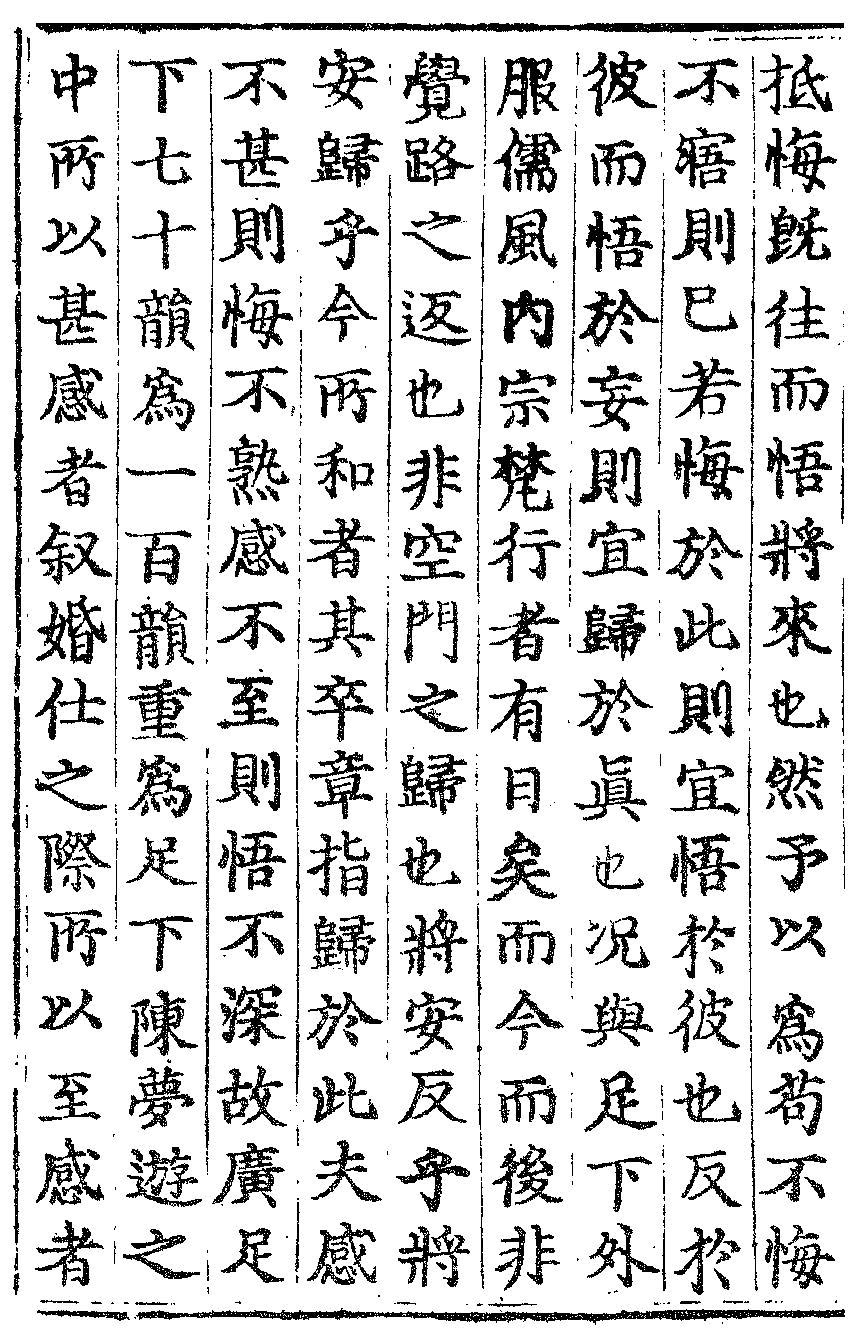 抵悔旣往而悟將來也然予以爲苟不悔
不寤則巳若悔於此則宜悟於彼也反於
彼而悟於妄則宜歸於眞也况與足下外
服儒風內宗梵行者有日矣而今而後非
覺路之返也非空門之歸也將安反乎將
安歸乎今所和者其卒章指歸於此夫感
不甚則悔不熟感不至則悟不深故廣足
下七十韻爲一百韻重爲足下陳夢遊之
中所以甚感者叙婚仕之際所以至感者